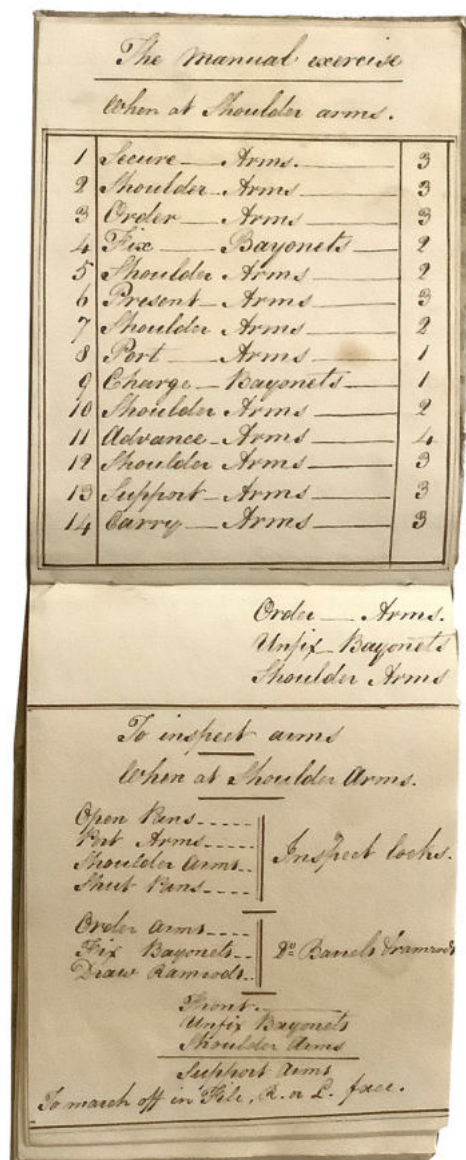 The Manual exercise
When at Shoulder arms.
1 Secure Arms. 3
2 Shoulder Arms 3
3 Order Arms 3
4 Fix Bayonets 2
5 Shoulder Arms 2
6 Present Arms 3
7 Shoulder Arms 2
8 Port Arms 1
9 Charge Bayonets 1
10 Shoulder Arms 2
11 Advance Arms 4
12 Shoulder Arms 3
13 Support Arms 3
14 Carry Arms 3
Order Arms.
Unfix Bayonets
Shoulder Arms
To inspect arms
When at Shoulder Arms.
Open Pans
Port Arms
Shoulder Arms
Shut Pans
Inspect locks.
Order Arms
Fix Bayonets
Draw Ramrods
Do Barrels & ramrods
Front.
Unfix Bayonets
Shoulder Arms
Support Arms
To march off in File, R. or L. face.